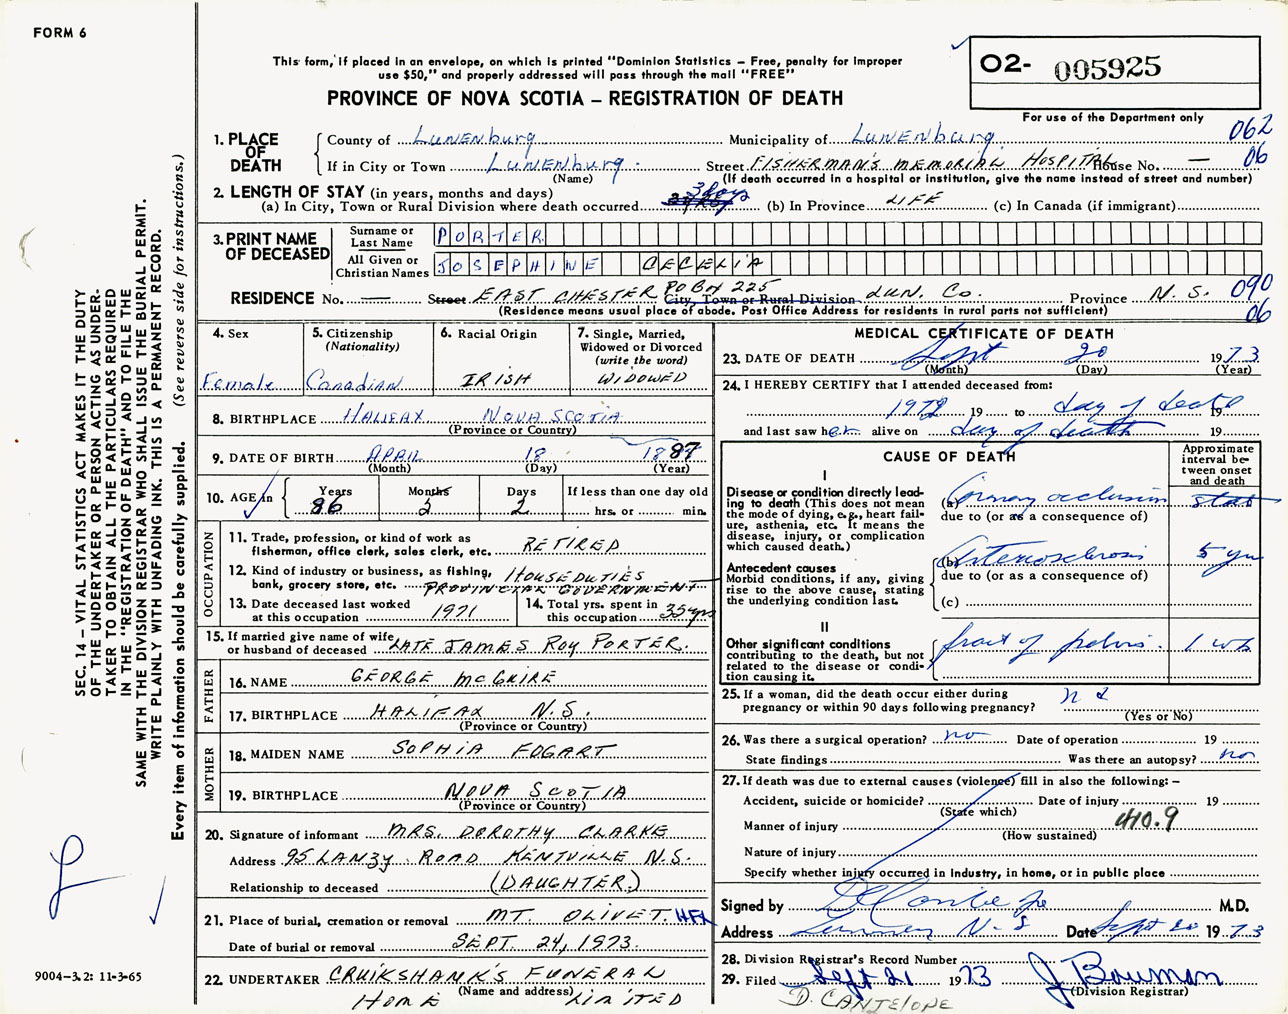 FORM 6
This form, if placed in an envelope, on which is printed "Dominion Statistics – Free, penalty for improper
use $50," and properly addressed will pass through the mail "FREE"
PROVINCE OF NOVA SCOTIA – REGISTRATION OF DEATH
O2- 005925
For use of the Department only
062
06
1. PLACE OF DEATH
County of Lunenburg Municipality of Lunenburg
If in City or Town Lunenburg Street FISHERMAN'S MEMORIAL HOSPITAL House No. —
(Name) (If death occurred in a hospital or institution, give the name instead of street and number)
2. LENGTH OF STAY (in years, months and days)
(a) In City, Town or Rural Division where death occurred 3 days (b) In Province LIFE (c) In Canada (if immigrant)
3. PRINT NAME OF DECEASED
Surname or Last Name PORTER
All Given or Christian Names JOSEPHINE CECELIA
RESIDENCE No. — Street EAST CHESTER PO BOX 225 City, Town or Rural Division LUN. Co. Province N.S. 090
06
(Residence means usual place of abode. Post Office Address for residents in rural parts not sufficient)
4. Sex
Female
5. Citizenship
(Nationality)
Canadian
6. Racial Origin
IRISH
7. Single, Married,
Widowed or Divorced
(write the word)
WIDOWED
8. BIRTHPLACE HALIFAX NOVA SCOTIA
(Province or Country)
9. DATE OF BIRTH APRIL 18 1887
(Month) (Day) (Year)
10. AGE in Years Months Days If less than one day old
86 2 2 hrs. or min.
OCCUPATION
11. Trade, profession, or kind of work as
fisherman, office clerk, sales clerk, etc. RETIRED
12. Kind of industry or business, as fishing,
bank, grocery store, etc. HOUSEDUTIES
PROVINCIAL GOVERNMENT
13. Date deceased last worked
at this occupation 1971
14. Total yrs. spent in
this occupation 35 yrs
15. If married give name of wife
or husband of deceased LATE JAMES ROY PORTER.
FATHER
16. NAME GEORGE McGUIRE
17. BIRTHPLACE HALIFAX N.S.
(Province or Country)
MOTHER
18. MAIDEN NAME SOPHIA FOGART
19. BIRTHPLACE NOVA SCOTIA
(Province or Country)
20. Signature of informant MRS. DOROTHY CLARKE
Address 95 LANZY ROAD KENTVILLE N.S.
Relationship to deceased (DAUGHTER.)
21. Place of burial, cremation or removal MT. OLIVET. HFX
Date of burial or removal SEPT 24, 1973
22. UNDERTAKER CRUIKSHANK'S FUNERAL
(Name and address)
HOME LIMITED
MEDICAL CERTIFICATE OF DEATH
23. DATE OF DEATH Sept 20 1973
(Month) (Day) (Year)
24. I HEREBY CERTIFY that I attended deceased from:
1972 19 to day of death 19
and last saw her alive on day of death 19
CAUSE OF DEATH
Approximate interval between onset and death
I
Disease or condition directly leading to death (This does not mean the mode of dying, e.g., heart failure, asthenia, etc. It means the disease, injury, or complication which caused death.)
(a) Coronary occlusion stat
due to (or as a consequence of)
Antecedent causes
Morbid conditions, if any, giving rise to the above cause, stating the underlying condition last.
(b) Arteriosclerosis 5 yrs
due to (or as a consequence of)
(c)
II
Other significant conditions
contributing to the death, but not related to the disease or condition causing it.
fract of pelvis. 1 wk
25. If a woman, did the death occur either during
pregnancy or within 90 days following pregnancy? no
(Yes or No)
26. Was there a surgical operation? no Date of operation 19
State findings Was there an autopsy? no
27. If death was due to external causes (violence) fill in also the following: –
Accident, suicide or homicide? Date of injury 19
(State which)
Manner of injury 410.9
(How sustained)
Nature of injury
Specify whether injury occurred in industry, in home, or in public place
Signed by M.D.
Address N.S Date Sept 20 1973
28. Division Registrar's Record Number
29. Filed Sept 21 1973 J Bowman
(Division Registrar)
D. CANTELOPE
SEC. 14 – VITAL STATISTICS ACT MAKES IT THE DUTY
OF THE UNDERTAKER OR PERSON ACTING AS UNDER-
TAKER TO OBTAIN ALL THE PARTICULARS REQUIRED
IN THE "REGISTRATION OF DEATH" AND TO FILE THE
SAME WITH THE DIVISION REGISTRAR WHO SHALL ISSUE THE BURIAL PERMIT.
WRITE PLAINLY WITH UNFADING INK. THIS IS A PERMANENT RECORD.
Every item of information should be carefully supplied. (See reverse side for instructions.)
9004-3.2: 11-3-65